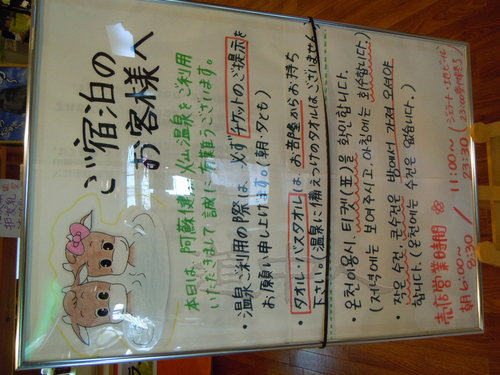 ご宿泊の
お客様へ
本日は、阿蘇健康火山温泉をご利用
いただきまして誠に有難うございます。
・温泉ご利用の際は、必ずチケットのご提示を
お願い申し上げます。(朝・夕とも)
・タオル・バスタオルは、お部屋からお持ち
下さい。(温泉に備えつけのタオルはございません。)
・온천이용시, 티켓(표)을 확인합니다.
(저녁에는 보여주시고, 아침에는 회수합니다.)
・작은 수건, 큰수건은 방에서 가져 오셔야
합니다. (온천에는 수건은 없습니다.)
売店営業時間
朝6:00~
8:30
/
11:00~
23:30